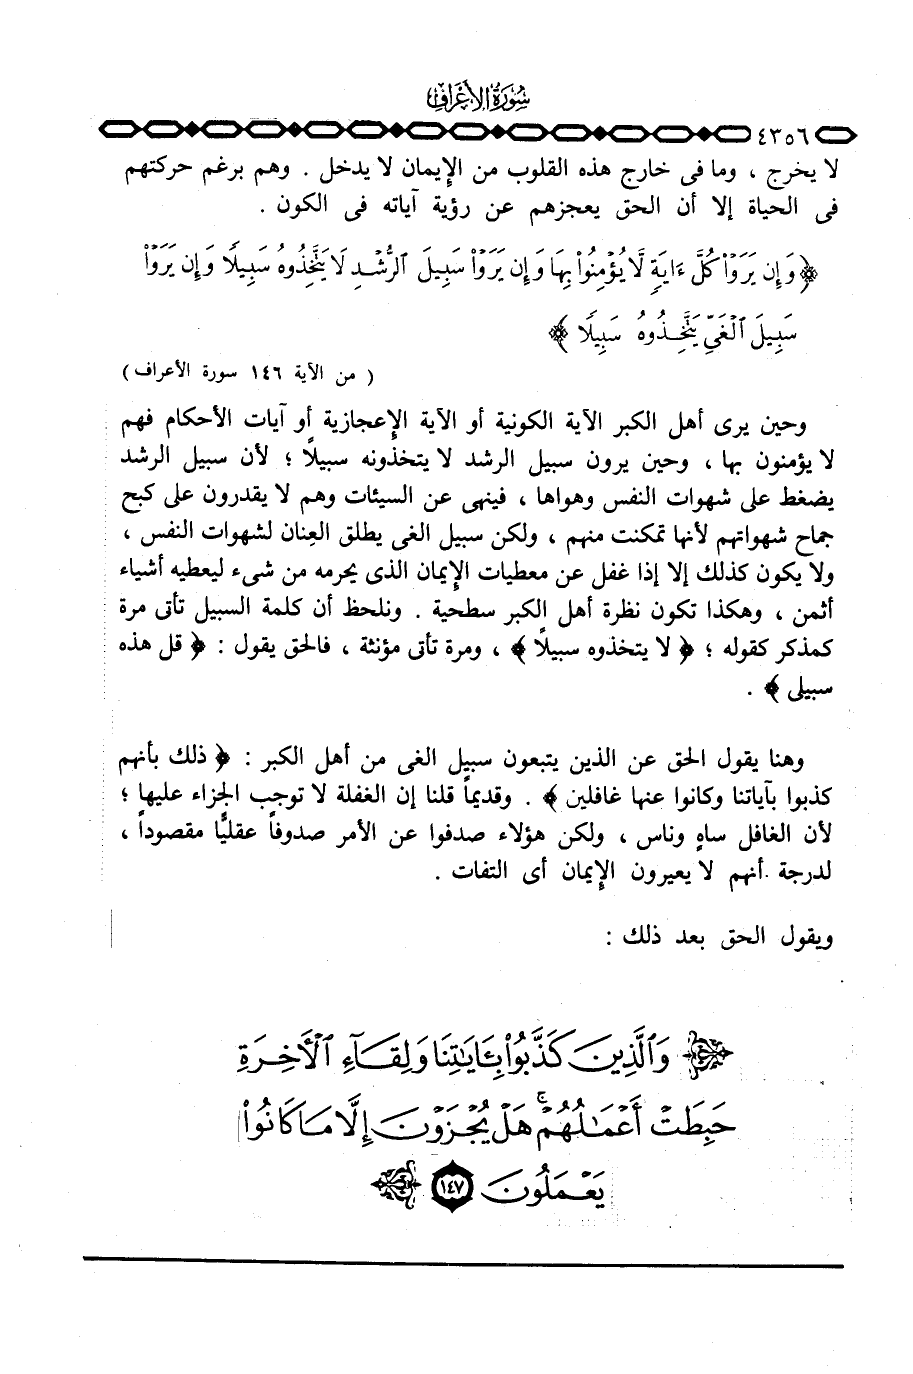 سورة الأعراف
٤٣٥٦
لا يخرج ، وما فى خارج هذه القلوب من الإيمان لا يدخل . وهم برغم حركتهم
فى الحياة إلا أن الحق يعجزهم عن رؤية آياته فى الكون .
﴿ وَإِن يَرَوْا۟ كُلَّ ءَايَةٍ لَّا يُؤْمِنُوا۟ بِهَا وَإِن يَرَوْا۟ سَبِيلَ ٱلرُّشْدِ لَا يَتَّخِذُوهُ سَبِيلًا وَإِن يَرَوْا۟
سَبِيلَ ٱلْغَىِّ يَتَّخِذُوهُ سَبِيلًا ﴾
( من الآية ١٤٦ سورة الأعراف )
وحين يرى أهل الكبر الآية الكونية أو الآية الإعجازية أو آيات الأحكام فهم
لا يؤمنون بها ، وحين يرون سبيل الرشد لا يتخذونه سبيلاً ؛ لأن سبيل الرشد
يضغط على شهوات النفس وهواها ، فينهى عن السيئات وهم لا يقدرون على كبح
جماح شهواتهم لأنها تمكنت منهم ، ولكن سبيل الغى يطلق العِنان لشهوات النفس ،
ولا يكون كذلك إلا إذا غفل عن معطيات الإيمان الذى يحرمه من شىء ليعطيه أشياء
أثمن ، وهكذا تكون نظرة أهل الكبر سطحية . ونلحظ أن كلمة السبيل تأتى مرة
كمذكر كقوله ؛ ﴿ لا يتخذوه سبيلاً ﴾ ، ومرة تأتى مؤنثة ، فالحق يقول : ﴿ قل هذه
سبيلى ﴾ .
وهنا يقول الحق عن الذين يتبعون سبيل الغى من أهل الكبر : ﴿ ذلك بأنهم
كذبوا بآياتنا وكانوا عنها غافلين ﴾ . وقديماً قلنا إن الغفلة لا توجب الجزاء عليها ؛
لأن الغافل ساهٍ وناس ، ولكن هؤلاء صدفوا عن الأمر صدوفاً عقليًّا مقصوداً ،
لدرجة أنهم لا يعيرون الإيمان أى التفات .
ويقول الحق بعد ذلك :
﴿ وَٱلَّذِينَ كَذَّبُوا۟ بِـَٔايَـٰتِنَا وَلِقَآءِ ٱلْـَٔاخِرَةِ
حَبِطَتْ أَعْمَـٰلُهُمْ ۚ هَلْ يُجْزَوْنَ إِلَّا مَا كَانُوا۟
يَعْمَلُونَ ١٤٧ ﴾